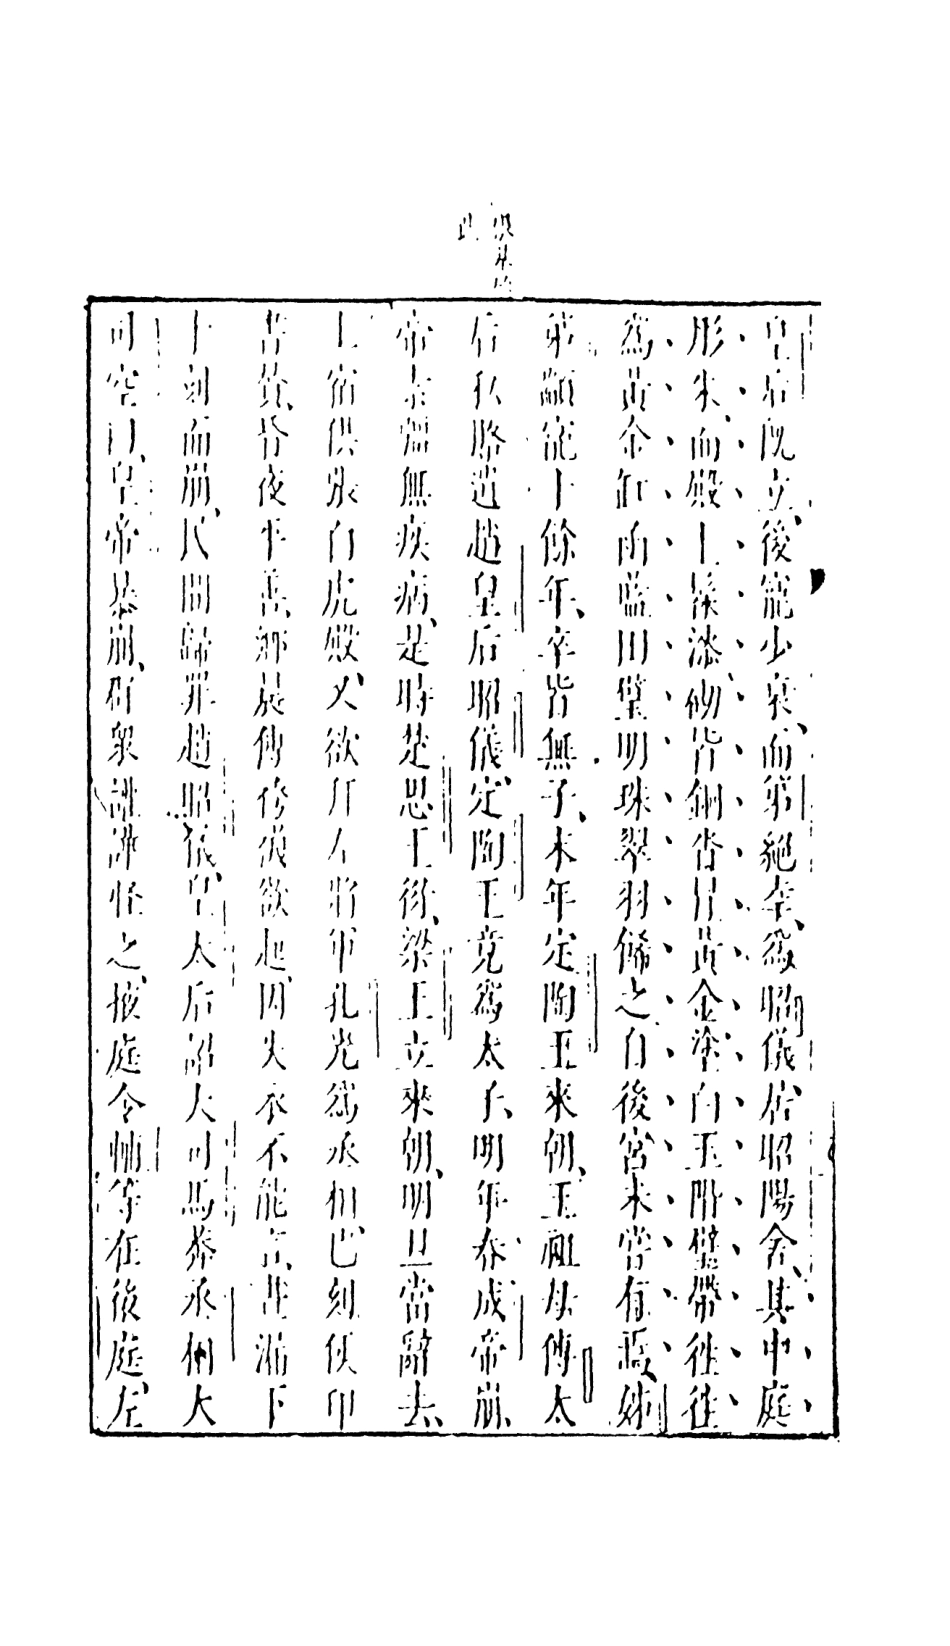 皇后既立、後寵少衰、而第絕幸、爲昭儀、居昭陽舍、其中庭
彤朱、而殿上髹漆、砌皆銅沓冒黃金塗白玉階壁帶往往
爲黃金釭函藍田璧明珠翠羽餙之自後宮未嘗有焉、姊
弟顓寵十餘年、卒皆無子、末年定陶王來朝、王祖母傅太
后私賂遺趙皇后昭儀、定陶王竟爲太子、明年春成帝崩、
帝素彊無疾病、是時楚思王衍、梁王立來朝、明旦當辭去、
上宿供張白虎殿、又欲拜左將軍孔光爲丞相、已刻侯印
書贊、昏夜平善、鄉晨傅絝襪欲起、因失衣不能言、晝漏下
十刻而崩、民間歸罪趙昭儀、皇太后詔大司馬莽丞相大
司空曰、皇帝暴崩、群衆讙譁怪之、掖庭令輔等在後庭、左